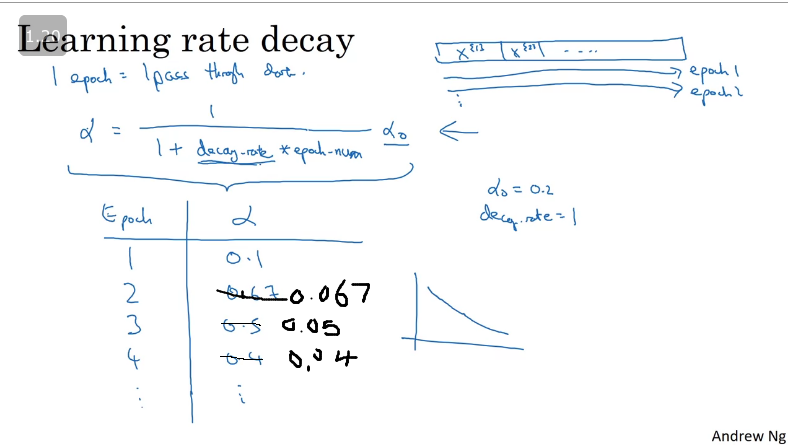 1.20
Learning rate decay
1 epoch = 1 pass through data.
X^{1} X^{2} ....
epoch 1
epoch 2
⋮
α = 1 / (1 + decay-rate * epoch-num) α₀ ←
α₀ = 0.2
decay.rate = 1
Epoch α
1 0.1
2 0.67 0.067
3 0.5 0.05
4 0.4 0.04
⋮ ⋮
Andrew Ng